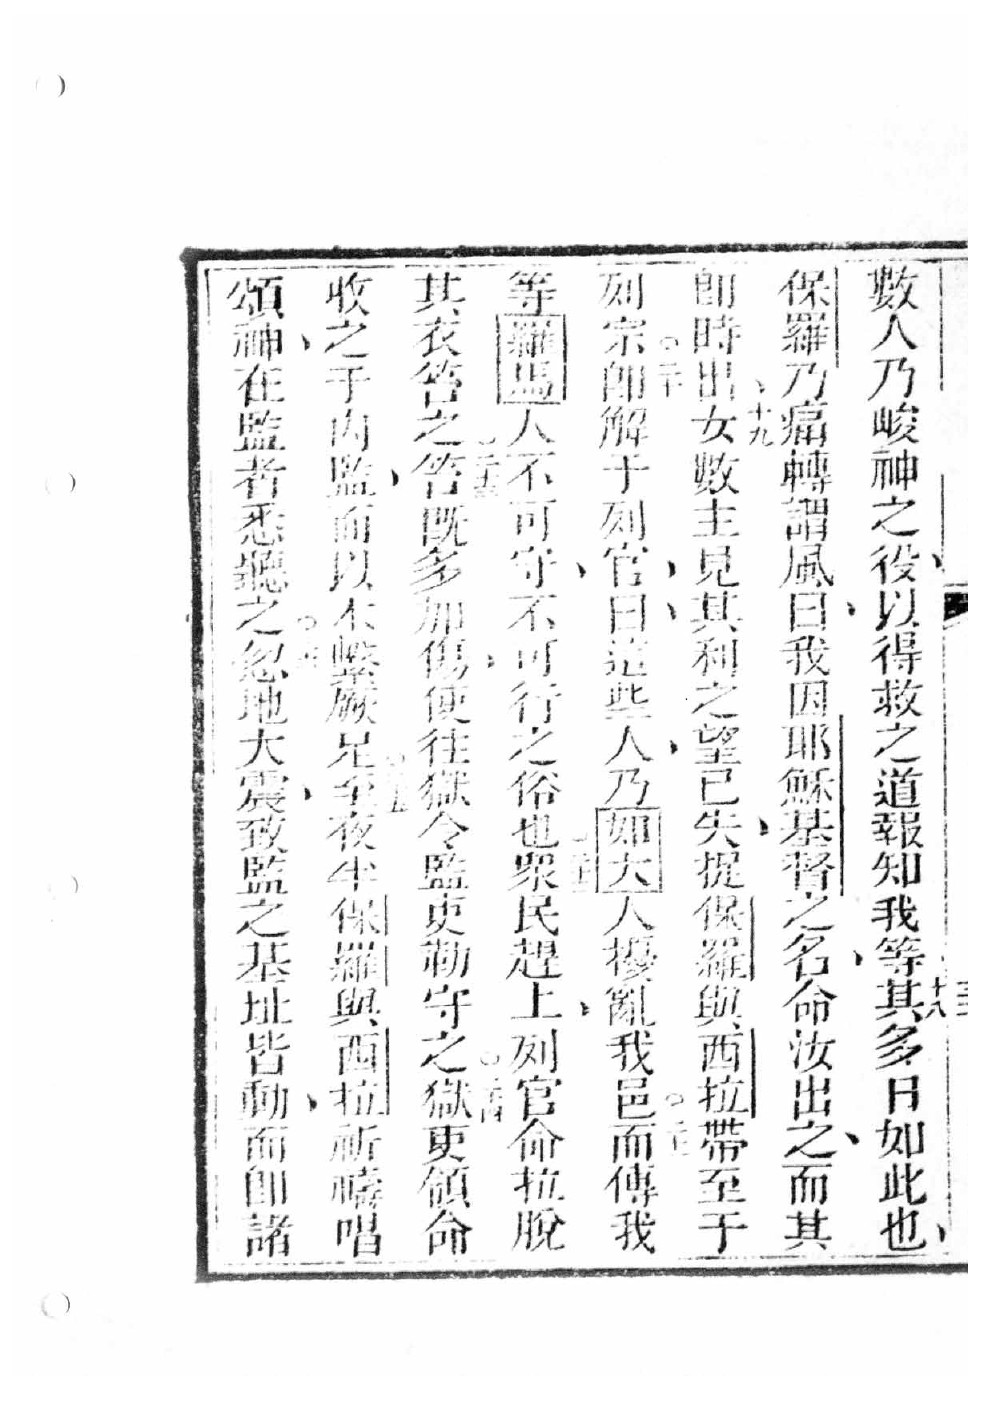 數人乃峻神之役以得救之道報知我等其十八多日如此也
保羅乃痛轉謂風曰我因耶穌基督之名命汝出之而其
卽時出十九女數主見其利之望已失捉保羅與西拉帶至于
列宗二十卽解于列官曰這些人乃如大人擾亂我邑二一而傳我
等羅馬人不可守不可行之俗也二二衆民趕上列官命拉脫
其衣笞之二三笞既多加傷便往獄令監吏勒守之二四獄吏領命
收之于內監而以木繫厥足二五至夜半保羅與西拉祈禱唱
頌神在監者悉聽之二六忽地大震致監之基址皆動而卽諸